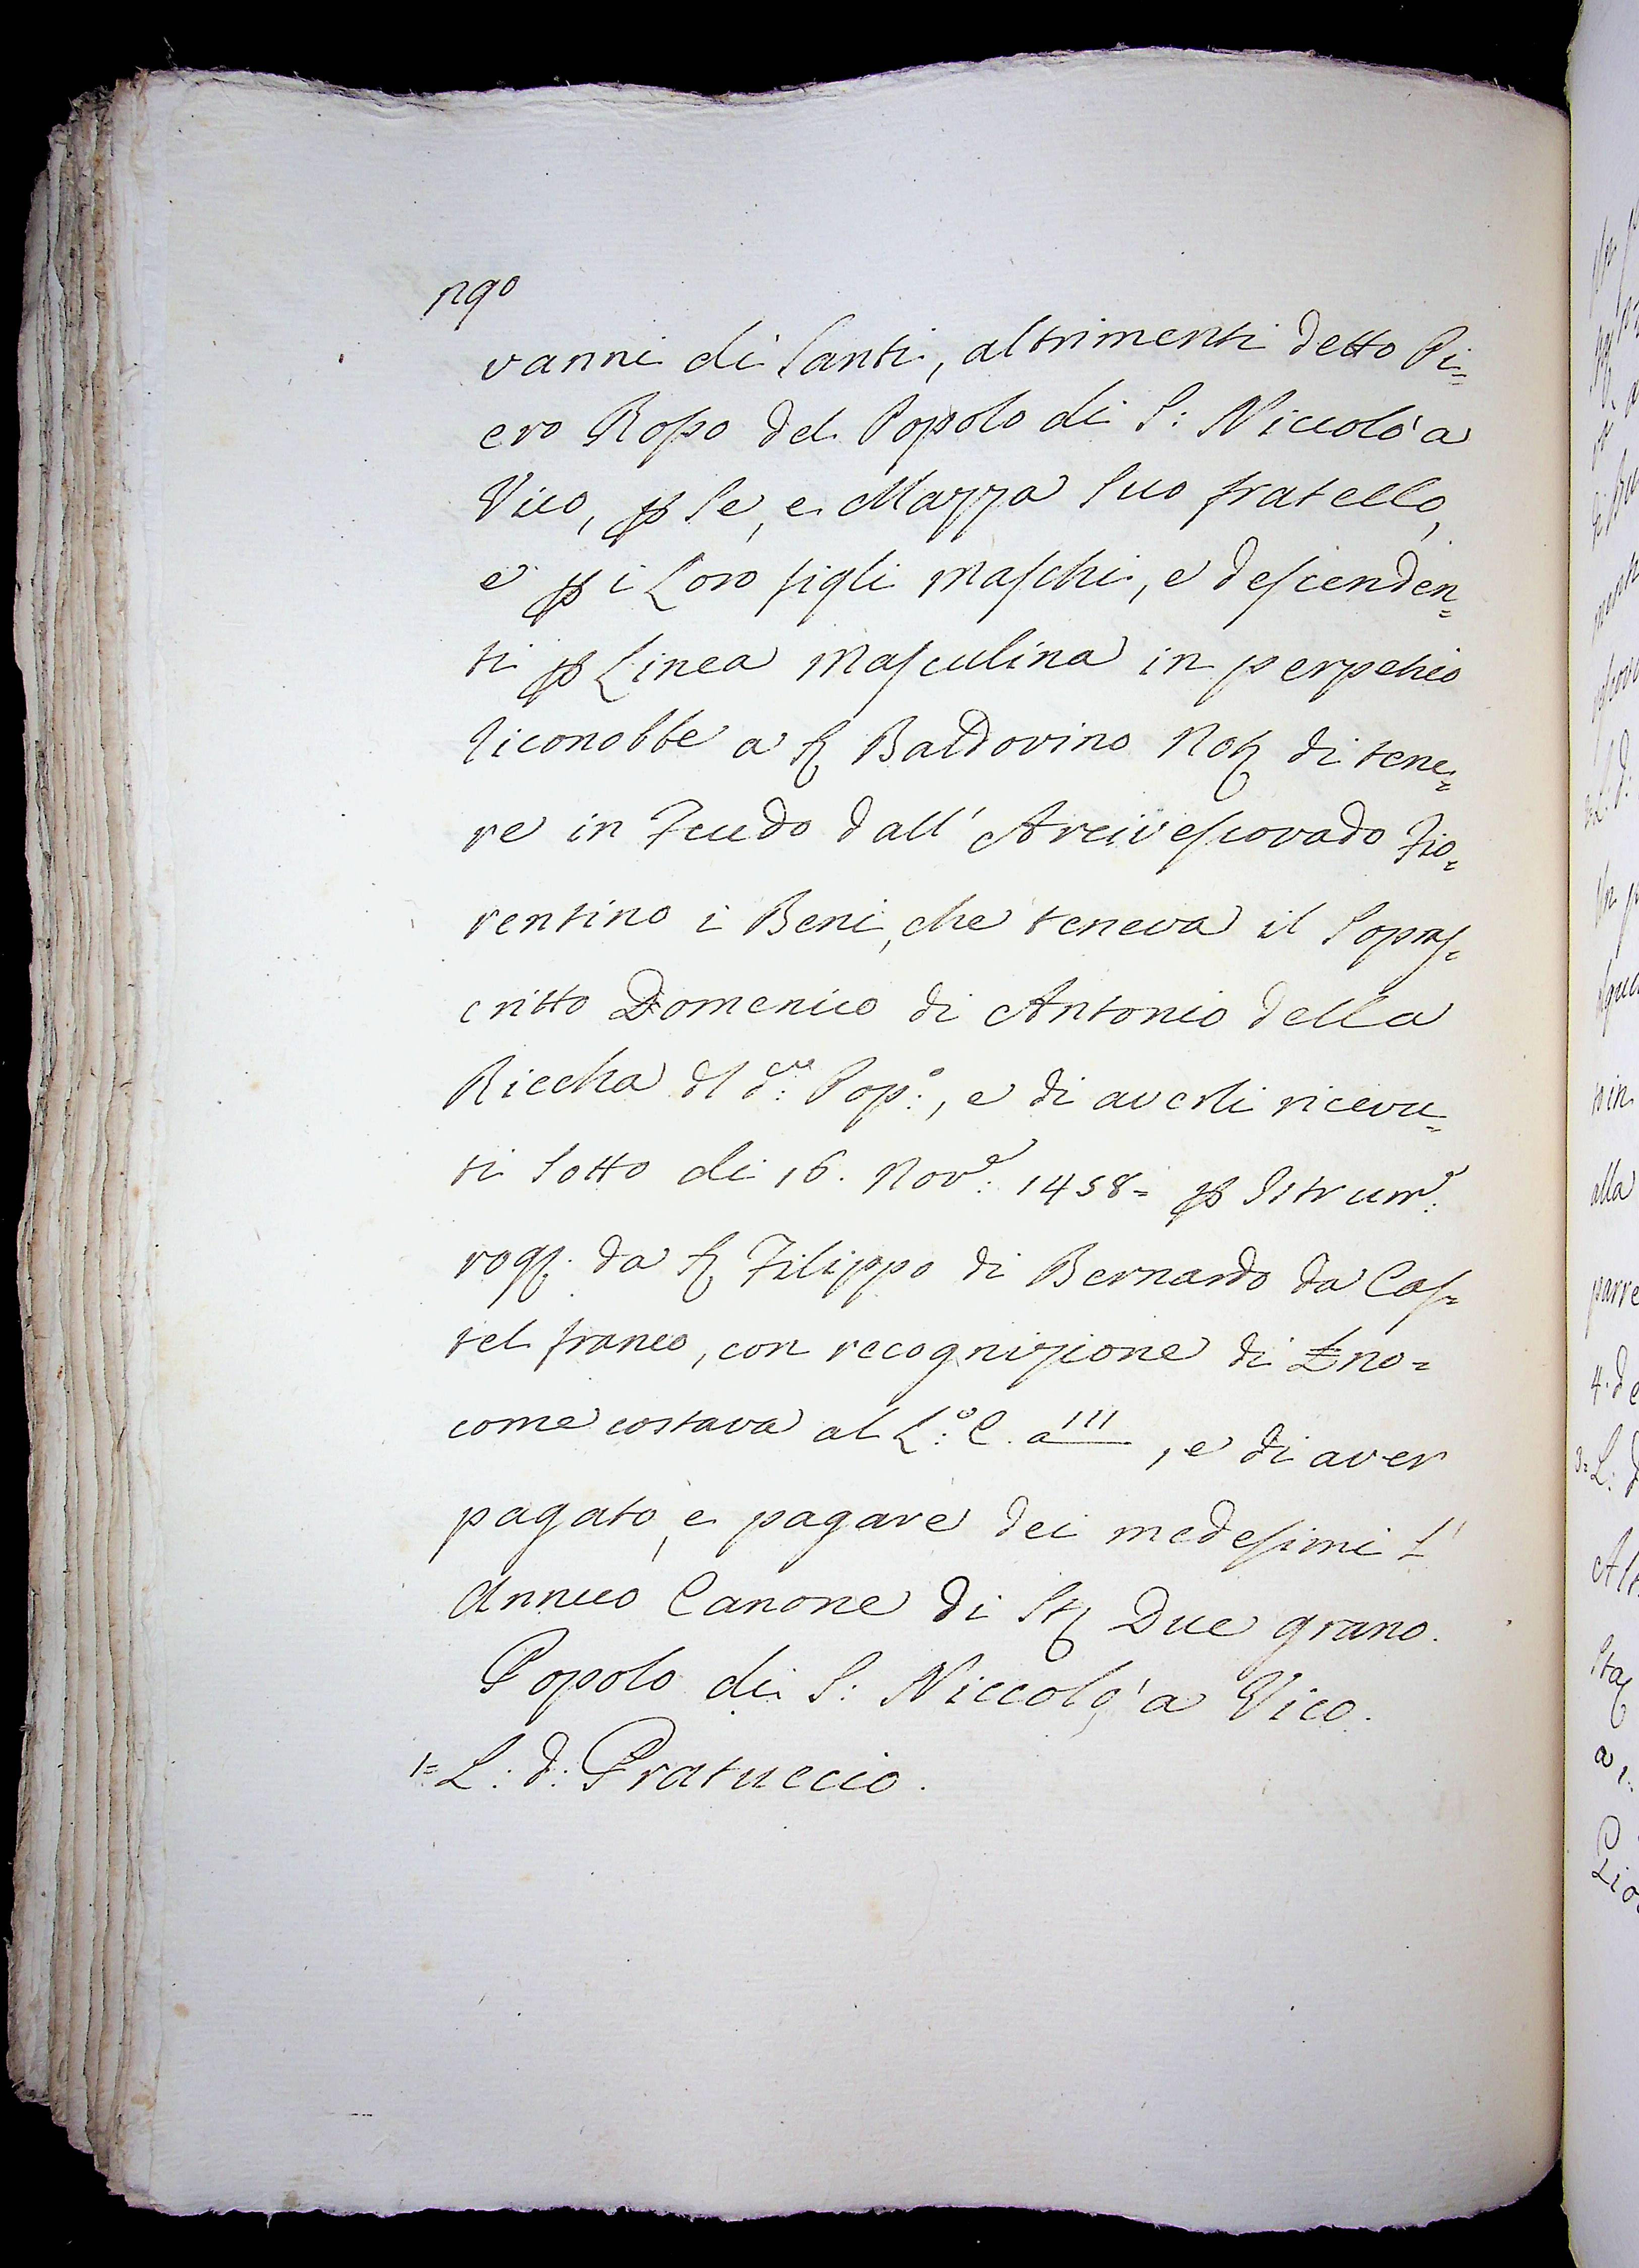 vanni di Santi, altrimenti detto Pi=
ero Rosso del Popolo di S: Niccolò a
Vico, p Se, e Mazza Suo fratello,
e p i Loro figli Maschi, e descenden=
ti p Linea Masculina in perpetuo
riconobbe a S Baldovino Not di tene=
re in Feudo dall' Arcivescovado Fio=
rentino i Beni, che teneva il Sopras=
critto Domenico di Antonio della
Riccha dl d:º Pop:º, e di averli ricevu=
ti Sotto di 16. Nov:e 1458= p Istrum:o
rog. da S Filippo di Bernardo da Cas=
tel franco, con recognizione di £ no=
come costava al L:º C. a 111, e di aver
pagato, e pagare dei medesimi L'
Annuo Canone di St Due grano.
Popolo di S: Niccolò a Vico.
1= L: d: Pratuccio.